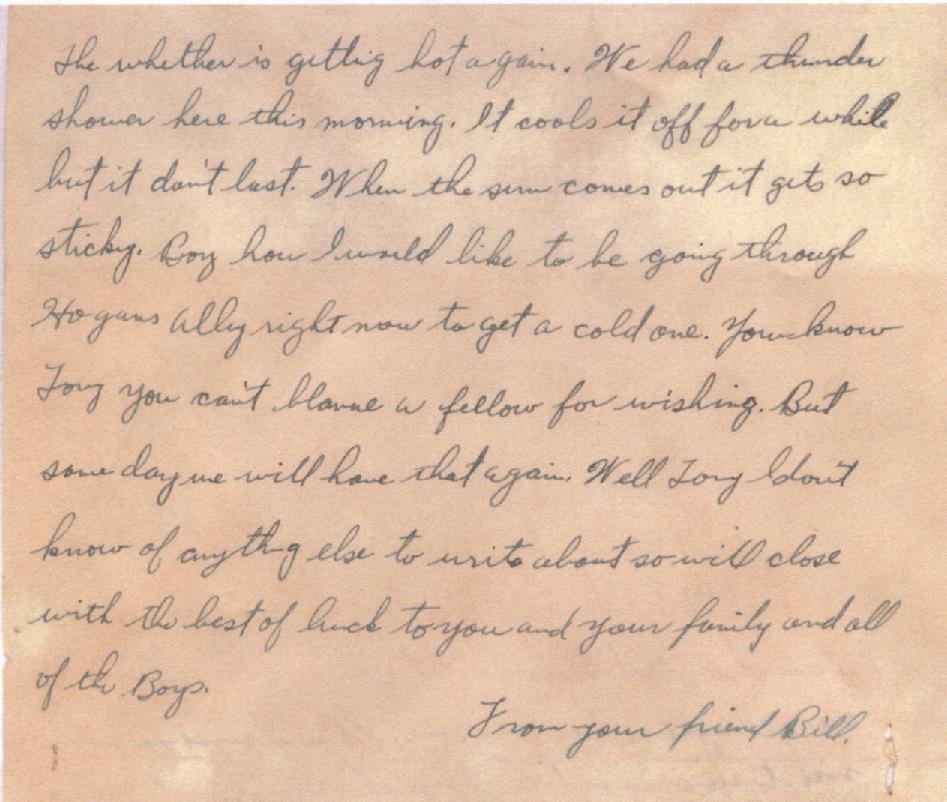 The whether is gettig hot again. We had a thunder
shower here this morning. It cools it off for a while
but it don't last. When the sun comes out it gets so
sticky. Boy how I would like to be going through
Hogans Ally right now to get a cold one. You know
Tony you can't blame a fellow for wishing. But
some day we will have that again. Well Tony I don't
know of anythng else to write about so will close
with the best of luck to you and your family and all
of the Boys.
From your friend Bill.